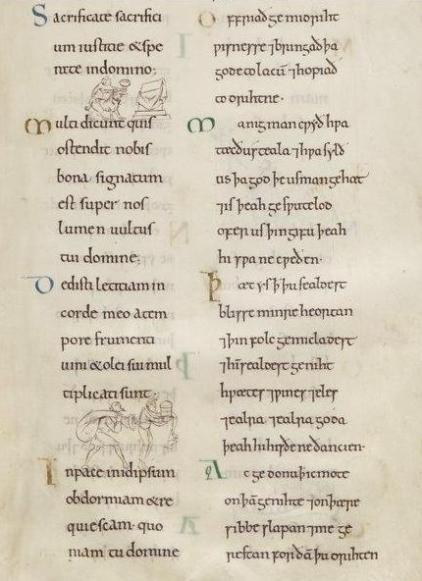 Sacrificate sacrifici
um iustitię & spe
rate in domino;
Multi dicunt quis
ostendit nobis
bona signatum
est super nos
lumen uultus
tui domine;
Dedisti letitiam in
corde meo a tem
pore frumenti
uini & olei sui mul
tiplicati sunt;
In pace in idipsum
obdormiam & re
quiescam· quo
niam tu domine
Offriað ge mid riht
ƿisnesse ⁊ bringað þa
gode to lacū ⁊ hopiað
to drihtne·
Manig man cƿyð hƿa
tæcð us teala ⁊ hƿa sylð
us þa god þe us man gehæt
⁊ is þeah gesƿutelod
ofer us þin gifu þeah
hi sƿa ne cƿeden·
Þæt ys þ þu sealdest
blisse minre heortan
⁊ þin folc gemicladest
⁊ him sealdest geniht
hƿætes ⁊ ƿines ⁊ eles
⁊ ealra goda
þeah hi his ðe ne dancien·
Ac ge don a þ ic mote
on þā genihte ⁊ on þære
sibbe slapan ⁊ me ge
restan for ðā þu drihten